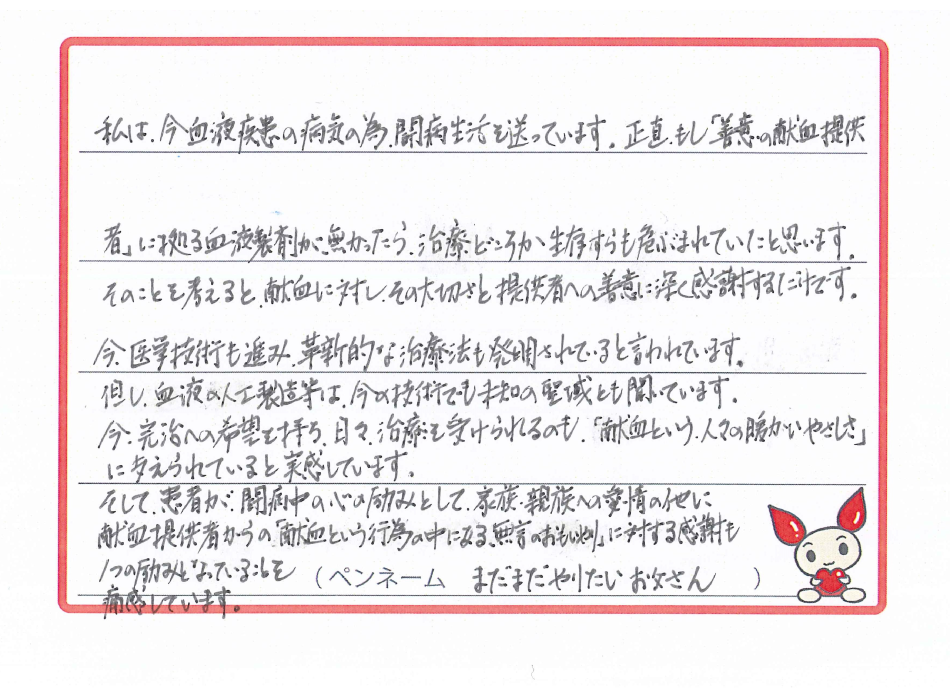 私は、今血液疾患の病気の為、闘病生活を送っています。正直、もし「善意の献血提供
者」に拠る血液製剤が、無かったら、治療どころか生存すらも危ぶまれていたと思います。
そのことを考えると、献血に対し、その大切さと提供者への善意に深く感謝するだけです。
今、医学技術も進み、革新的な治療法も発明されていると言われています。
但し、血液の人工製造等は、今の技術でも未知の聖域とも聞いています。
今、完治への希望を持ち、日々、治療を受けられるのも、「献血という、人々の暖かいやさしさ」
に与えられていると実感しています。
そして、患者が、闘病中の心の励みとして、家族・親族への愛情の他に
献血提供者からの「献血という行為の中にある、無言のおもいやり」に対する感謝も
1つの励みとなっていることを
(ペンネーム まだまだやりたいお父さん )
痛感しています。